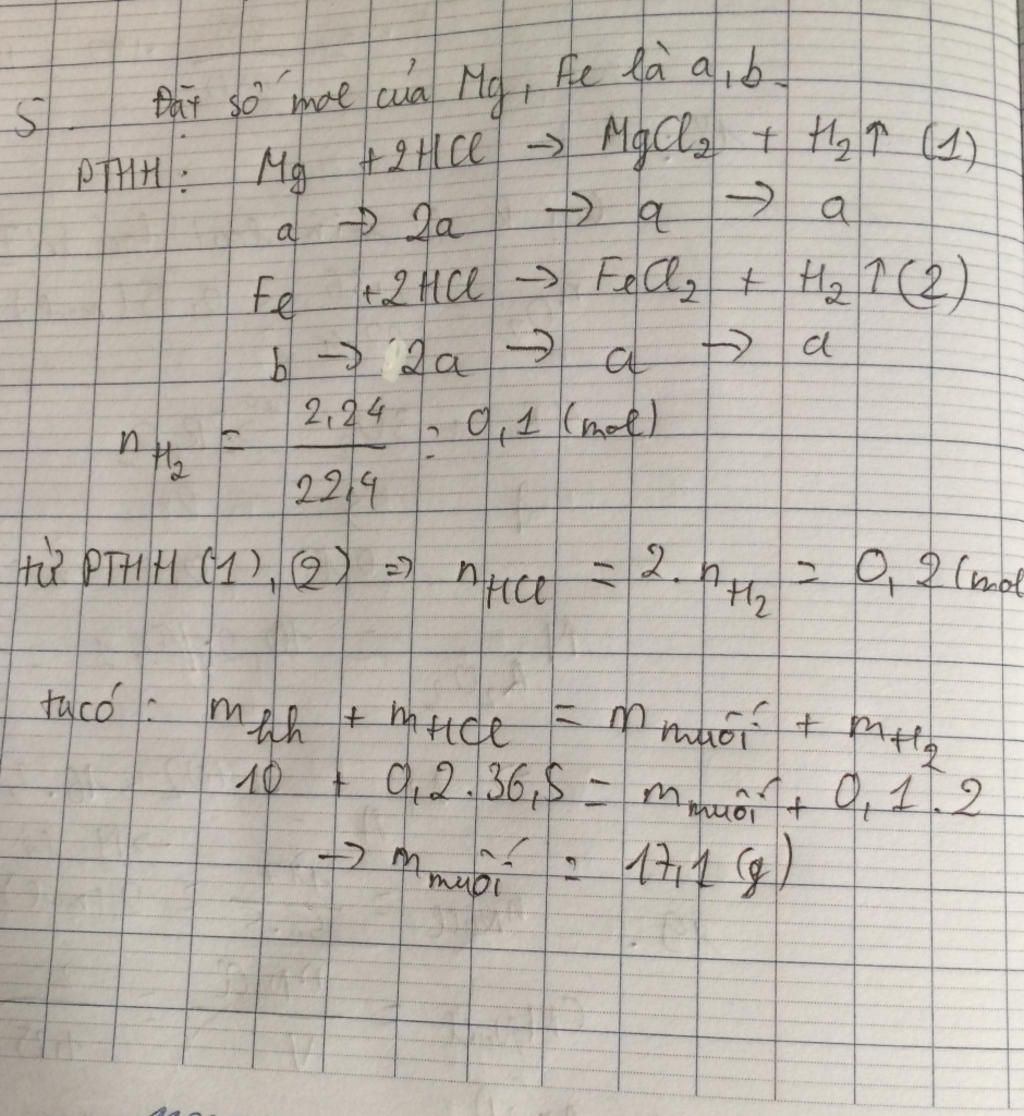 5. Đặt số mol của Mg, Fe là a, b.
PTHH: Mg + 2HCl → MgCl₂ + H₂↑ (1)
a → 2a → a → a
Fe + 2HCl → FeCl₂ + H₂↑ (2)
b → 2a → a → a
n_H₂ = 2,24 / 22,4 = 0,1 (mol)
từ PTHH (1), (2) ⇒ n_HCl = 2. n_H₂ = 0,2 (mol
ta có: m_hh + m_HCl = m_muối + m_H₂
10 + 0,2.36,5 = m_muối + 0,1.2
→ m_muối = 17,1 (g)